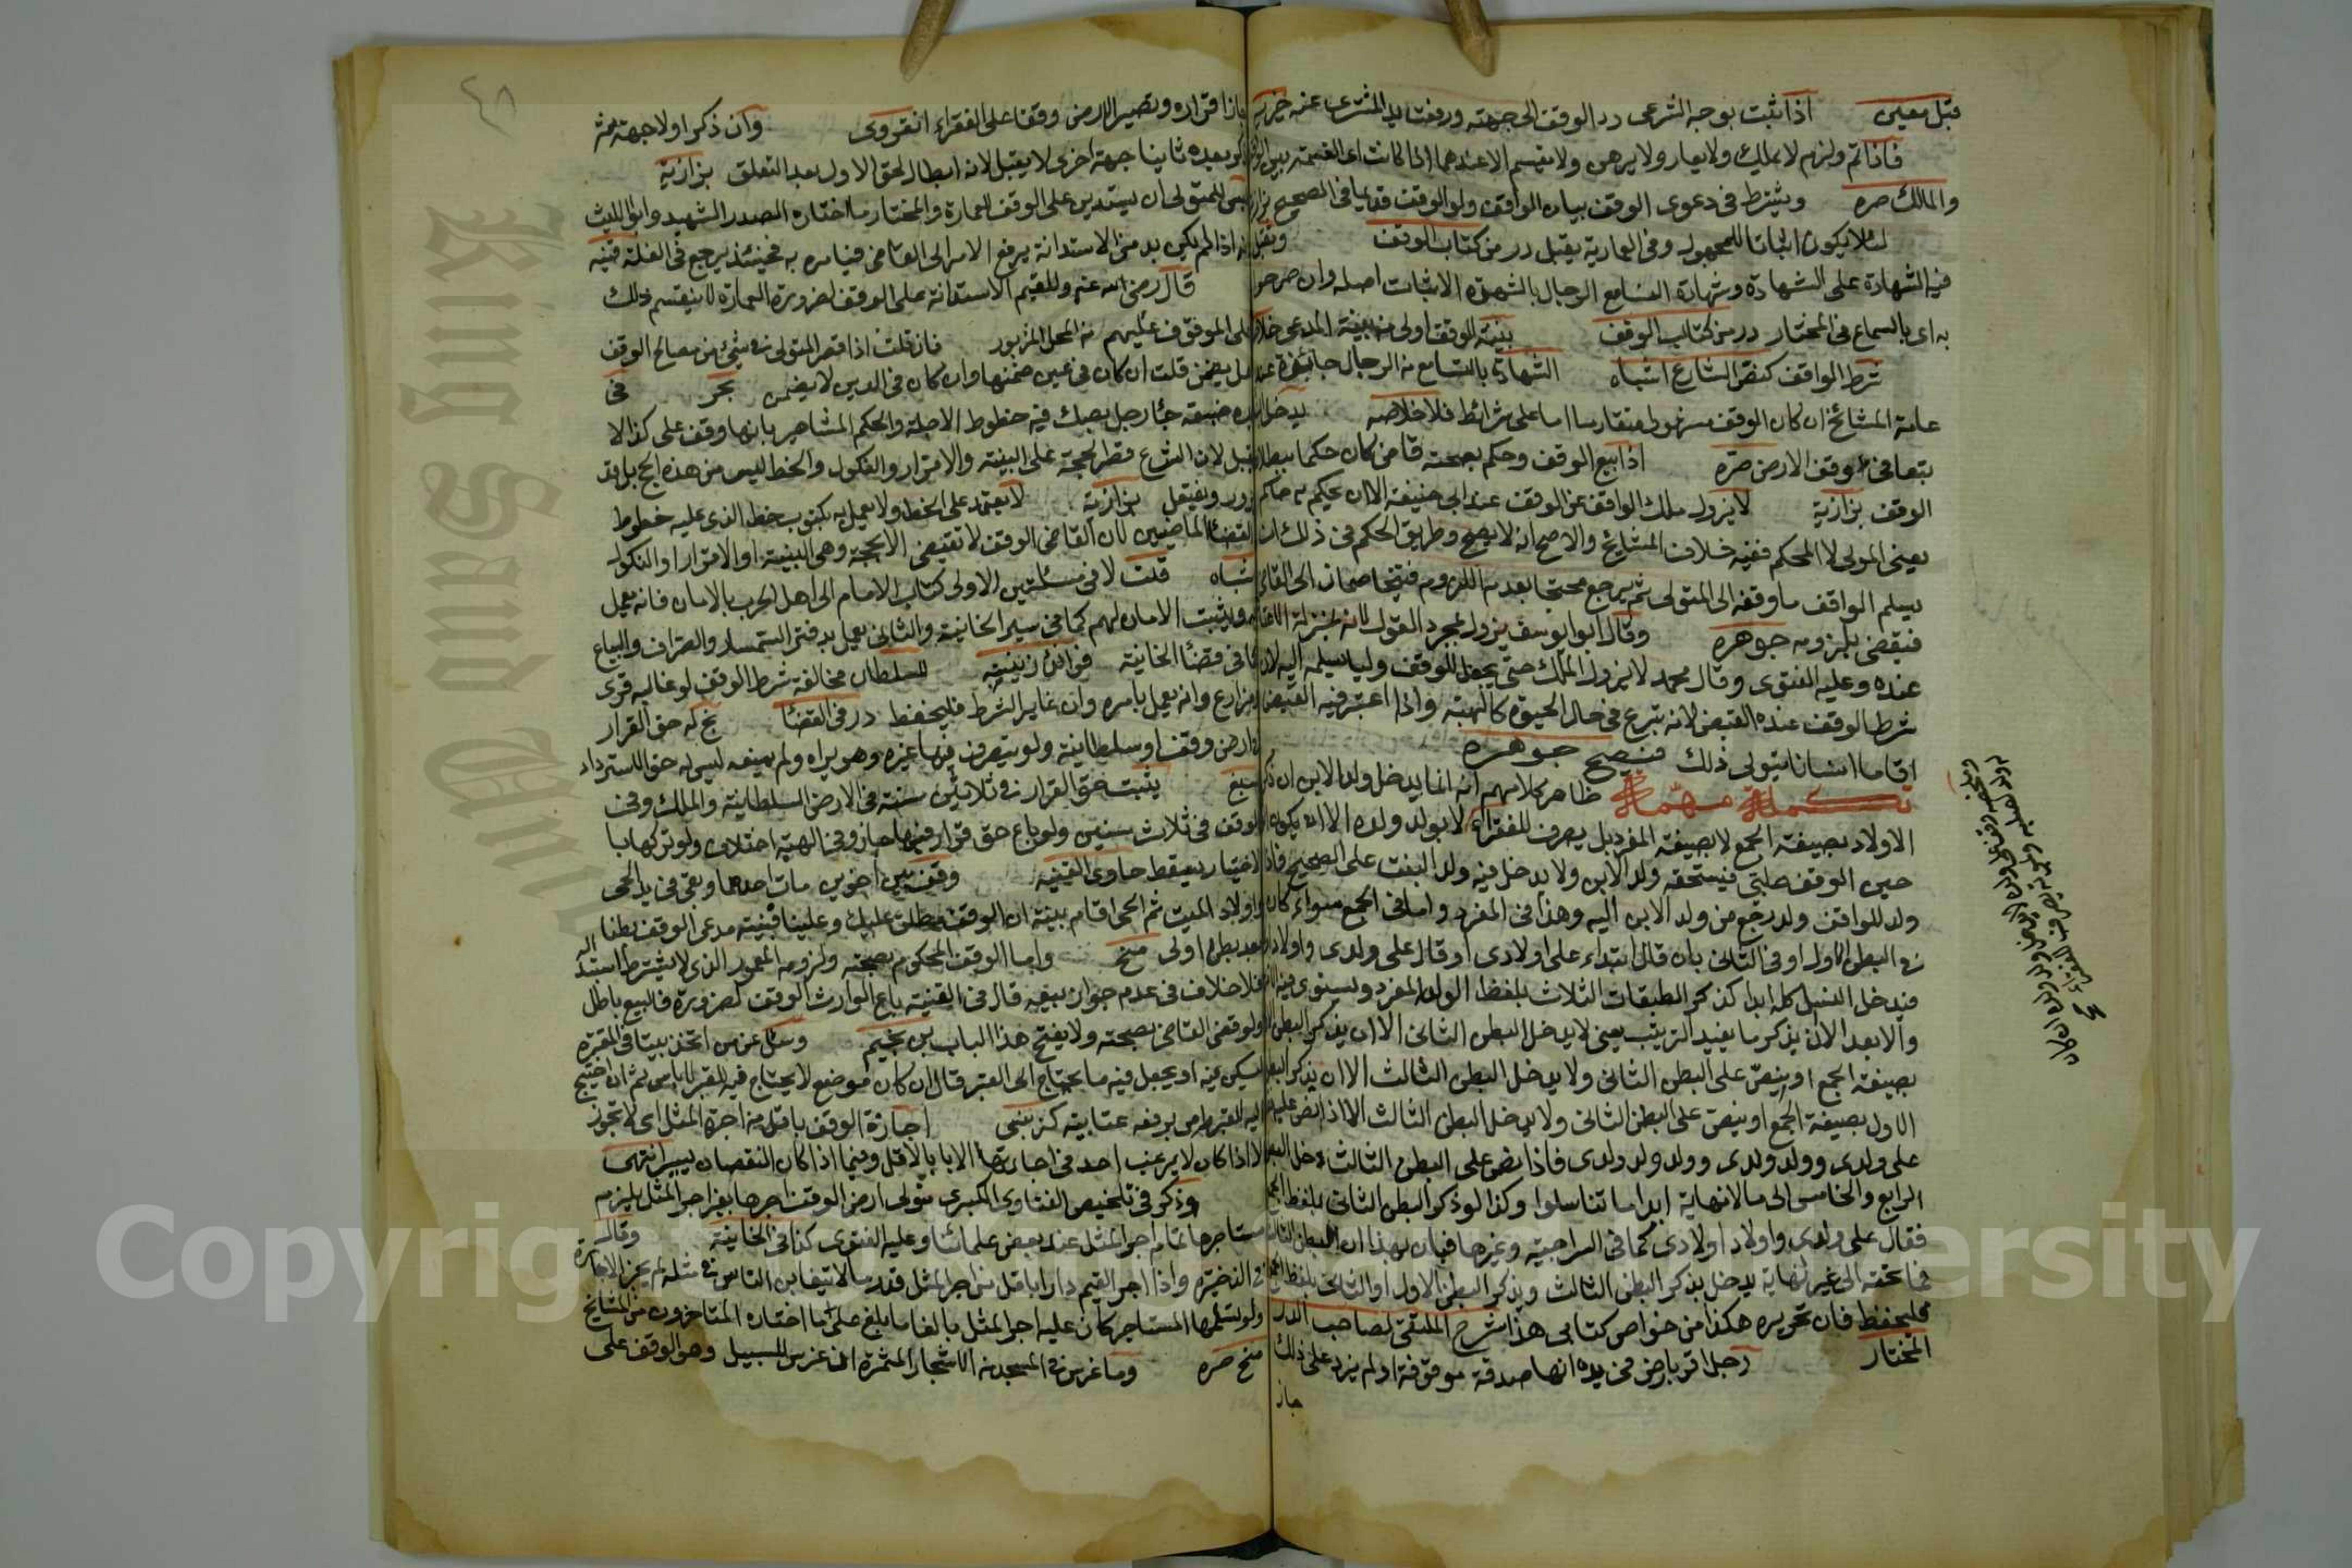 قبل معين اذا ثبت بوجه الشرعى رد الوقف الى جهته ورفعت يد المشترى عنه خيريه
فاذا تم ولزم لا يملك ولا يعار ولا يرهن ولا يقسم الا عندهما اذا كانت القسمة بين الواقف
والمالك صره ويشترط فى دعوى الوقف بيان الواقف ولو الوقف قديما فى الصحيح بزازيه
لئلا يكون اثباتا للمجهول وفى العمارية يقبل درر من كتاب الوقف وتقبل
فيه الشهادة على الشهادة وشهادة النساء مع الرجال بالشهرة لاثبات اصله وان صرحوا
به اى بالسماع فى المختار درر من كتاب الوقف بينة الوقف اولى من بينة المدعى
شرط الواقف كنص الشارع اشباه الشهادة بالتسامع من الرجال جائزة عند
عامة المشائخ ان كان الوقف مشهورا متقادما اما على شرائط فلا خلاصه يدخل
تبعا فى وقف الارض صره اذا بيع الوقف وحكم بصحته قاض كان حكما ببطلان
الوقف بزازية لا يزول ملك الواقف عن الوقف عند ابى حنيفة الا ان يحكم به حاكم
يعنى المولى لا المحكم ففيه خلاف المشايخ والاصح انه لا يصح وطريق الحكم فى ذلك ان
يسلم الواقف ما وقفه الى المتولى ثم يرجع محتجا بعدم اللزوم فيتخاصمان الى القاضى
فيقضى بلزومه جوهره وقال ابو يوسف يزول بمجرد القول لانه بمنزلة الاعتاق
عنده وعليه الفتوى وقال محمد لا يزول الملك حتى يجعل للوقف وليا يسلمه اليه لان
شرط الوقف عنده القبض لانه تبرع فى حال الحيوة كالهبة واذا اعتبر فيه القبض
اقاما انسانا يتولى ذلك فيصح جوهره
تكملة مهمة ظاهر كلامهم انه انما يدخل ولد الابن ان ذكر
الاولاد بصيغة الجمع لا بصيغة المفرد بل يصرف للفقراء لا لولد ولده الا ان يكون
حين الوقف صلبى فيستحقه ولد الابن ولا يدخل فيه ولد البنت على الصحيح فاذا
ولد للواقف ولد رجع من ولد الابن اليه وهذا فى المفرد واما فى الجمع سواء كان
فى البطن الاول او فى الثانى بان قال ابتداء على اولادى او قال على ولدى واولاد
فيدخل النسل كله ابدا كذكر الطبقات الثلاث بلفظ الولد المفرد ويستوى فيه
والابعد الا ان يذكر ما يفيد الترتيب يعنى لا يدخل البطن الثانى الا ان يذكر البطن
بصيغة الجمع او ينص على البطن الثانى ولا يدخل البطن الثالث الا ان يذكر
الاول بصيغة الجمع او ينص على البطن الثانى ولا يدخل البطن الثالث الا اذا نص عليه
على ولدى وولد ولدى وولد ولد ولدى فاذا نص على البطن الثالث دخل
الرابع والخامس الى ما لا نهاية ابدا ما تناسلوا وكذا لو ذكر البطن الثانى بلفظ
فقال على ولدى واولاد اولادى كما فى السراجية وغيرها فبان بهذا ان البطن الثالث
فما تحته الى غير نهاية يدخل بذكر البطن الثالث وبذكر البطن الاول او الثانى بلفظ
فليحفظ فان تحريره هكذا من خواص كتابى هذا شرح الملتقى لصاحب الدر
المختار رجل اقر بارض فى يده انها صدقة موقوفة او لم يزد على ذلك
جاز
جاز اقراره وتصير الارض وقفا على الفقراء انقروى وان ذكر اولا جهة ثم
ذكر بعده ثانيا جهة اخرى لا يقبل لانه ابطال لحق الاول بعد التعلق بزازية
للمتولى ان يستدين على الوقف للعمارة والمختار ما اختاره الصدر الشهيد وابو الليث
انه اذا لم يكن بد من الاستدانة يرفع الامر الى القاضى فيامره به فحينئذ يرجع فى الغلة قنيه
قال رضى الله عنه وللقيم الاستدانة على الوقف لضرورة العمارة لا ليقسم ذلك
على الموقوف عليهم من المحل المزبور فان قلت اذا قصر المتولى فى شئ من مصالح الوقف
هل يضمن قلت ان كان فى عين ضمنها وان كان فى الدين لا يضمن بحر فى
يده ضيعة جاء رجل بصك فيه خطوط الاجلة والحكم المشاهير بانها وقف على كذا لا
يقبل لان الشرع قصر الحجة على البينة والاقرار والنكول والخط ليس من هذه الحجج بل قد
يزور ويفتعل بزازية لا يعتمد على الخط ولا يعمل به بمكتوب خط الذى عليه خطوط
القضاة الماضيين لان القاضى الوقف لا تقضى الا بحجة وهى البينة او الاقرار او النكول
اشباه قلت لا فى مسئلتين الاولى كتاب الامام الى اهل الحرب بالامان فانه يعمل
به ويثبت الامان لهم كما فى سير الخانية والثانى يعمل بدفتر السمسار والصراف والبياع
كما فى قضاء الخانية فوائد زينيه للسلطان مخالفة شرط الوقف لو غالبه قرى
ومزارع وانه يعمل بامره وان غاير الشرط فليحفظ درر فى القضاء له حق القرار
فى ارض وقف او سلطانية ولو يتصرف فيها غيره وهو يراه ولم يمنعه ليس له حق الاسترداد
يثبت حق القرار فى ثلاثين سنة فى الارض السلطانية والملك وفى
الوقف فى ثلاث سنين ولو باع حق قراره فيها جاز وفى الهبة اختلاف ولو تركها با
لاختيار يسقط حاوى القنيه وقف بين اخوين مات احدهما وبقى فى يد الحى
واولاد الميت ثم الحى اقام بينة ان الوقف مطلق عليك وعلينا فبينة مدعى الوقف بطنا
بعد بطن اولى منح واما الوقف المحكوم بصحته ولزومه المعمور الذى لا يشترط استبداله
فلا خلاف فى عدم جواز بيعه قال فى القنية باع الوارث الوقف لضرورة فالبيع باطل
ولو قضى القاضى بصحته ولا يفتح هذا الباب بن نجيم وسئل عن من اتخذ بيتا فى المقبرة
ليسكن فيه او يجعل فيه ما يحتاج الى القبر قال ان كان موضع لا يحتاج فيه للقبر لا باس ثم ان احتيج
اليه للقبر امر برفعه عتابيه كز بنبى اجارة الوقف باقل من اجرة المثل اى لا تجوز
الا اذا كان لا يرغب احد فى اجارتها الا بالاقل وفيما اذا كان النقصان يسير انتهى
وذكر فى تلخيص الفتاوى الكبرى متولى ارض الوقف اجرها بغير اجر المثل يلزم
مستاجرها تمام اجر المثل عند بعض علمائنا وعليه الفتوى كذا فى الخانية وقال
فى الذخيرة واذا اجر القيم دارا باقل من اجر المثل قدر ما لا يتغابن الناس فى مثله لم يجز الاجارة
ولو تسلمها المستاجر كان عليه اجر المثل بالغا ما بلغ على ما اختاره المتاخرون من المشايخ
منح صره وما غرس فى المسجد من الاشجار المثمرة ان غرس للسبيل وهو الوقف على